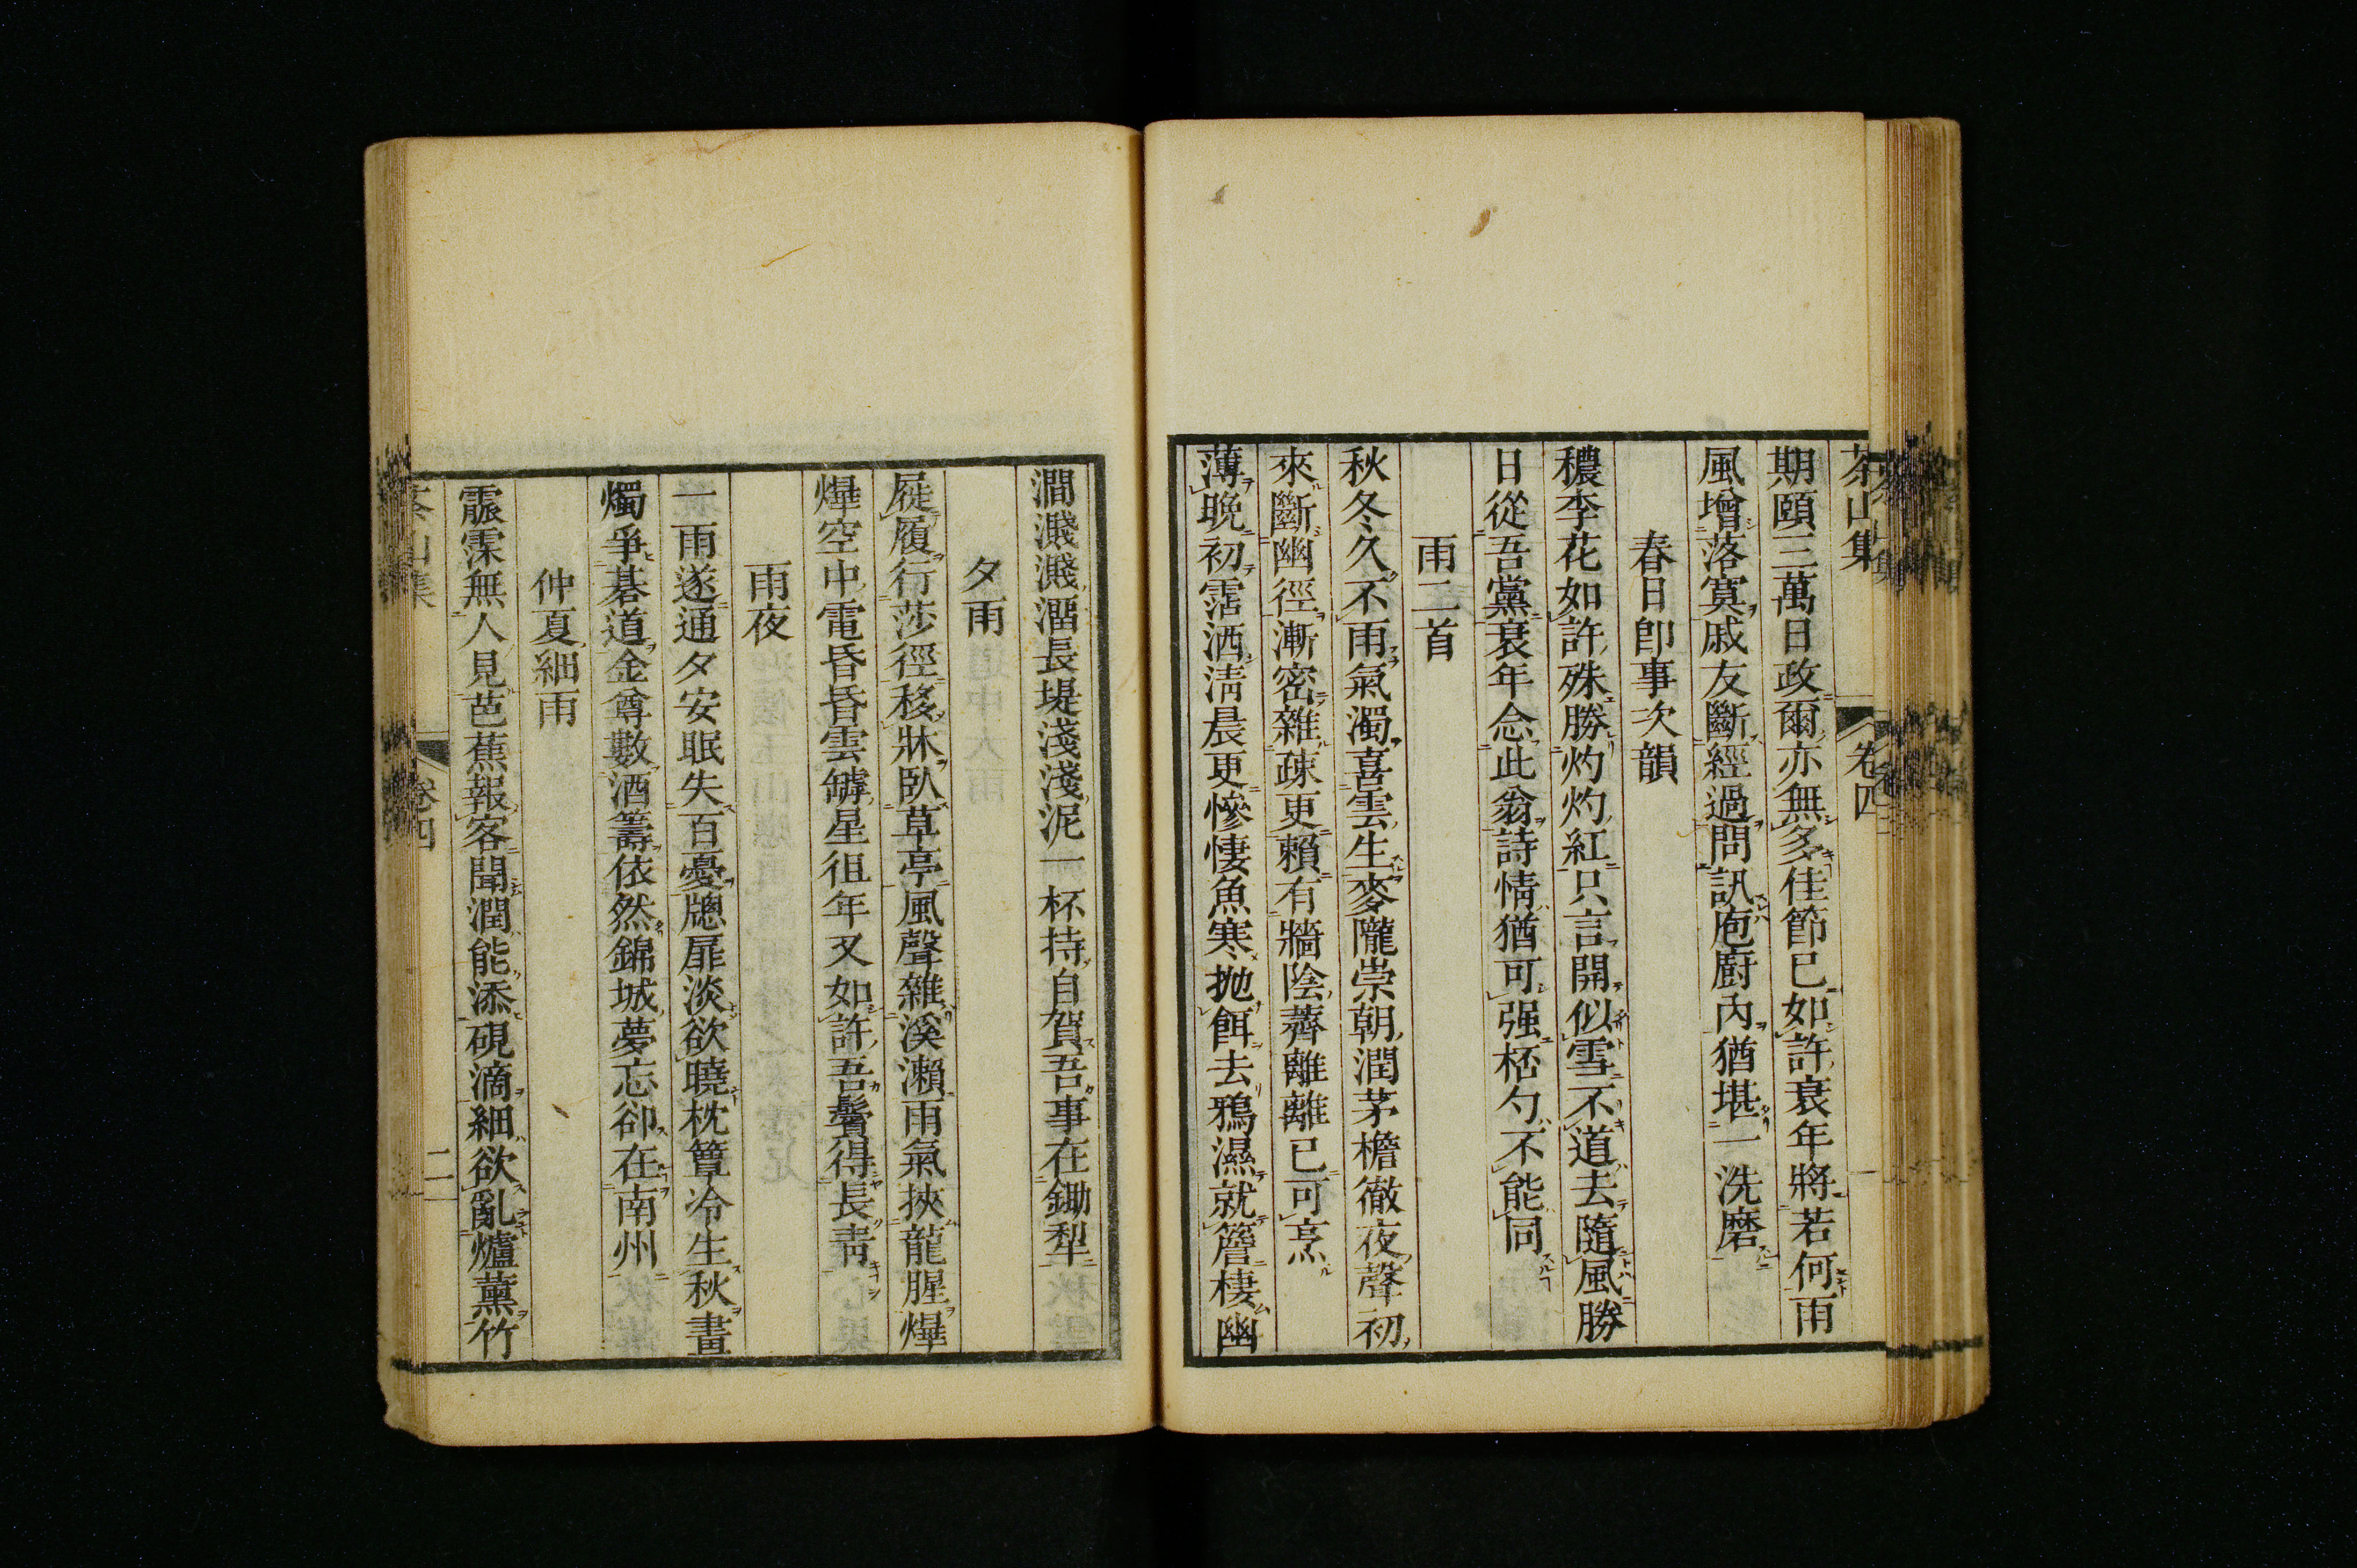 茶山集 卷四
期頤三萬日政爾亦無多佳節已如許衰年將若何雨
風增落寞戚友斷經過問訊庖廚內猶堪一洗磨
春日卽事次韻
穠李花如許殊勝灼灼紅只言開似雪不道去隨風勝
日從吾黨衰年念此翁詩情猶可强桮勺不能同
雨二首
秋冬久不雨氣濁喜雲生麥隴崇朝潤茅檐徹夜聲初
來斷幽徑漸密雜疎更賴有牆陰薺離離已可烹
薄晚初霑洒淸晨更慘悽魚寒拋餌去鴉濕就簷棲幽
澗濺濺溜長堤淺淺泥一杯持自賀吾事在鋤犁
夕雨
屣履行莎徑移牀臥草亭風聲雜溪瀨雨氣挾龍腥燁
燁空中電昏昏雲罅星徂年又如許吾鬢得長靑
雨夜
一雨遂通夕安眠失百憂牕扉淡欲曉枕簟冷生秋畫
燭爭碁道金尊數酒籌依然錦城夢忘卻在南州
仲夏細雨
霢霂無人見芭蕉報客聞潤能添硯滴細欲亂爐薰竹
茶山集 卷四 二